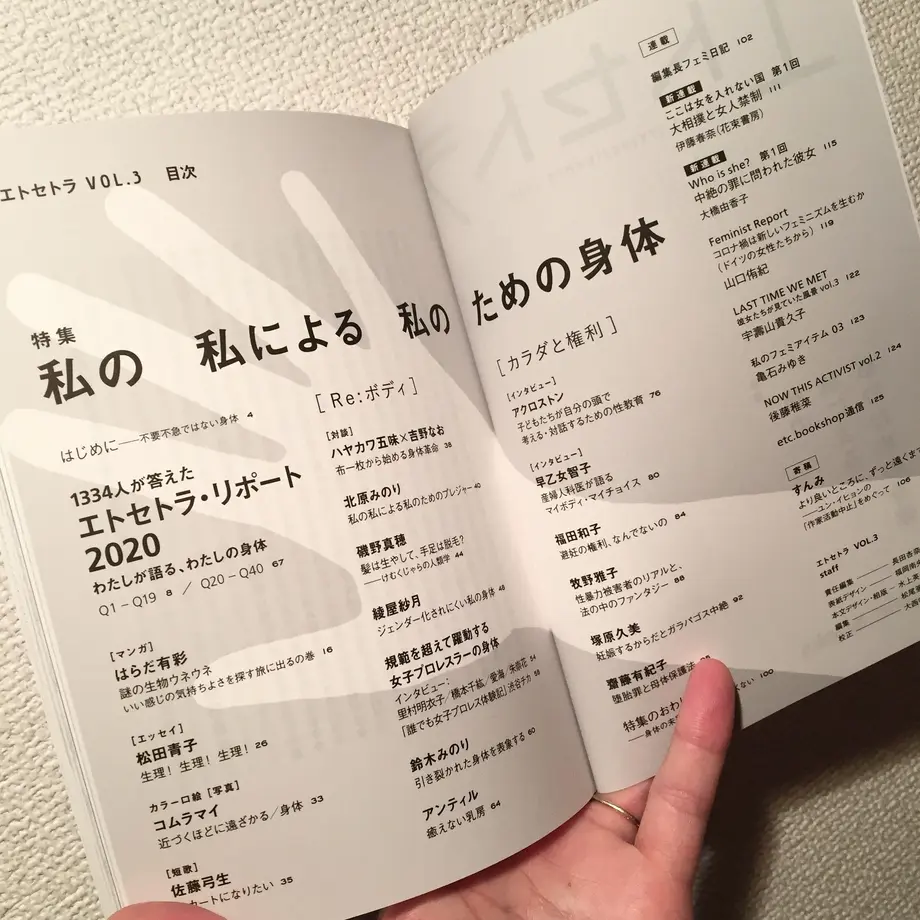 エトセトラ VOL.3 目次
特集
私の 私による 私の ための身体
はじめに——不要不急ではない身体 4
1334人が答えた
エトセトラ・リポート
2020
わたしが語る、わたしの身体
Q1−Q19 8 / Q20−Q40 67
[マンガ]
はらだ有彩
謎の生物ウネウネ
いい感じの気持ちよさを探す旅に出るの巻 16
[エッセイ]
松田青子
生理!生理!生理! 26
カラー口絵[写真]
コムラマイ
近づくほどに遠ざかる/身体 33
[短歌]
佐藤弓生
カートになりたい 35
[Re:ボディ]
[対談]
ハヤカワ五味×吉野なお
布一枚から始める身体革命 38
北原みのり
私の私による私のためのプレジャー 40
磯野真穂
髪は生やして、手足は脱毛?
——けむくじゃらの人類学 44
綾屋紗月
ジェンダー化されにくい私の身体 48
規範を超えて躍動する
女子プロレスラーの身体
インタビュー:
里村明衣子/橋本千紘/愛海/朱崇花 54
「誰でも女子プロレス体験記」渋谷チカ 58
鈴木みのり
引き裂かれた身体を表象する 60
アンティル
癒えない乳房 64
[カラダと権利]
[インタビュー]
アクロストン
子どもたちが自分の頭で
考える・対話するための性教育 76
[インタビュー]
早乙女智子
産婦人科医が語る
マイボディ・マイチョイス 80
福田和子
避妊の権利、なんでないの 84
牧野雅子
性暴力被害者のリアルと、
法の中のファンタジー 88
塚原久美
妊娠するからだとガラパゴス中絶 92
齋藤有紀子
堕胎罪と母体保護法
特集のおわり
——身体の未 ない 100
連載
編集長フェミ日記 102
新連載
ここは女を入れない国 第1回
大相撲と女人禁制 111
伊藤春奈(花束書房)
新連載
Who is she? 第1回
中絶の罪に問われた彼女 115
大橋由香子
Feminist Report
コロナ禍は新しいフェミニズムを生むか
(ドイツの女性たちから) 119
山口侑紀
LAST TIME WE MET
彼女たちが見ていた風景 vol.3 122
宇壽山貴久子
私のフェミアイテム 03 123
亀石みゆき
NOW THIS ACTIVIST vol.2 124
後藤稚菜
etc.bookshop通信 125
寄稿
すんみ
より良いところに、ずっと遠くま
——ユン・イヒョンの
「作家活動中止」をめぐって 106
エトセトラ VOL.3
staff
責任編集 長田杏奈
表紙デザイン 福岡南央
本文デザイン・組版
編集 松尾
校正 大西